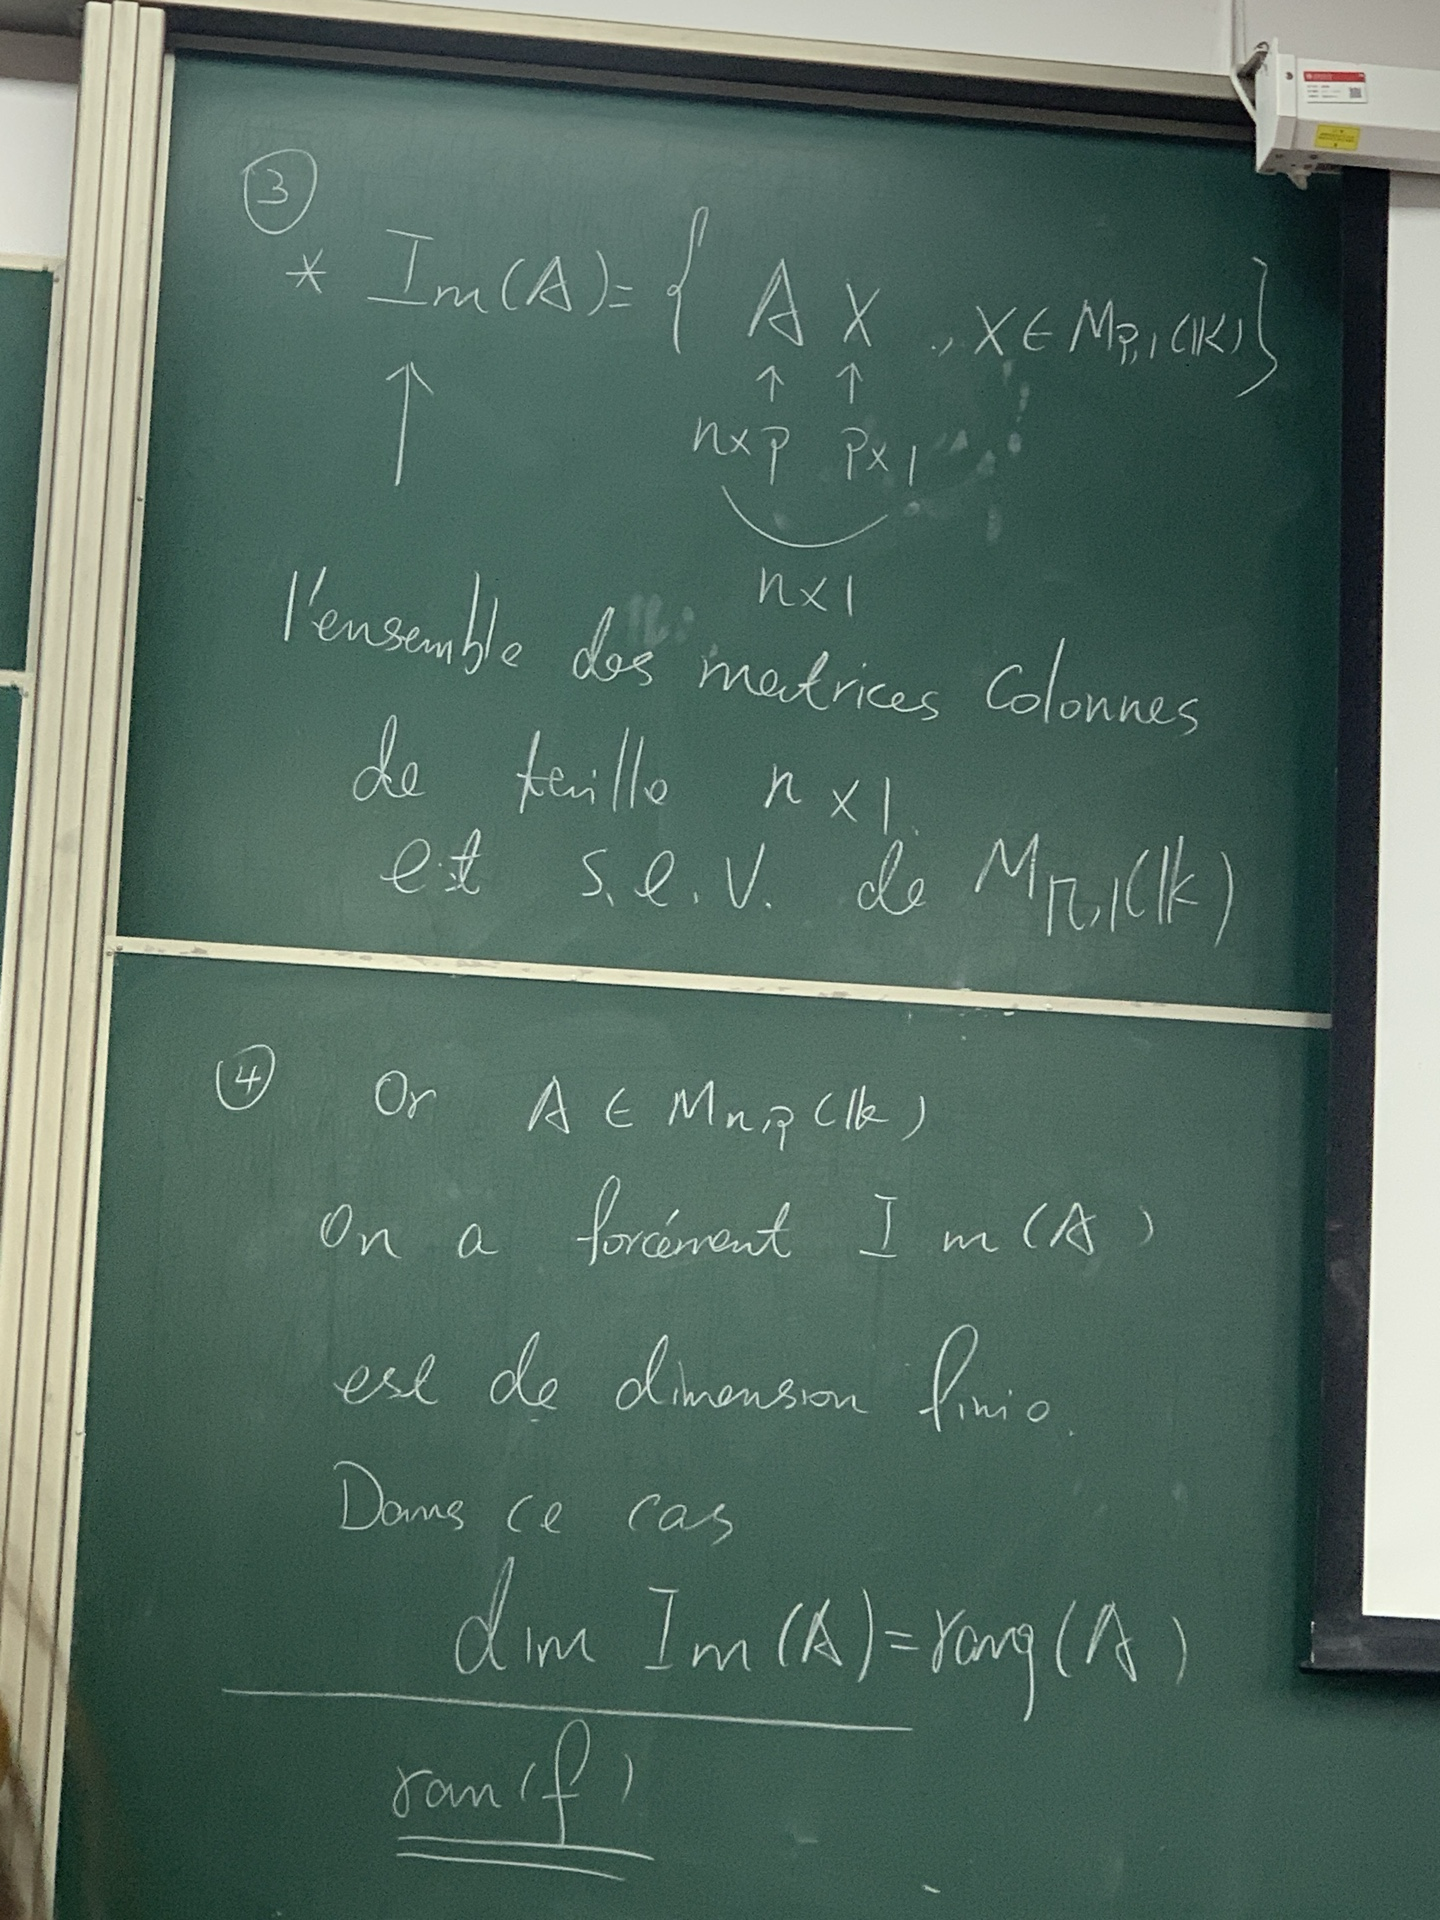 ③
* Im(A) = { A X , X ∈ M_{p,1}(𝕂) }
↑ ↑ ↑
n×p p×1
n×1
l'ensemble des matrices colonnes
de taille n×1
est s.e.v. de M_{n,1}(𝕂)
④ Or A ∈ M_{n,p}(𝕂)
On a forcément Im(A)
est de dimension finie.
Dans ce cas
dim Im(A) = rang(A)
ran(f)